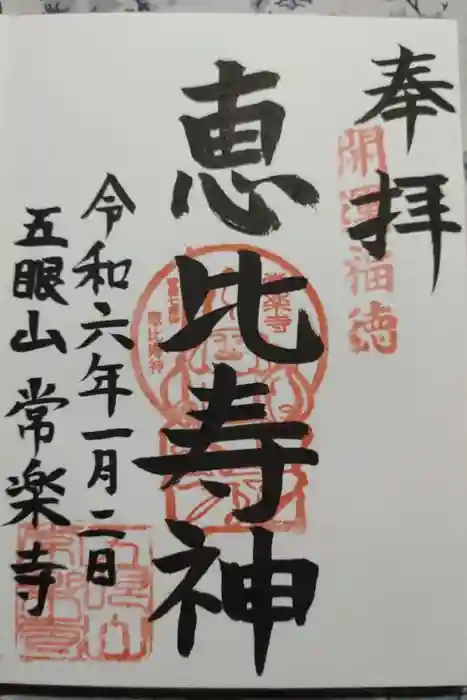 奉拝
開運福徳
恵比寿神
常楽寺
恵比寿神
令和六年一月二日
五眼山 常楽寺